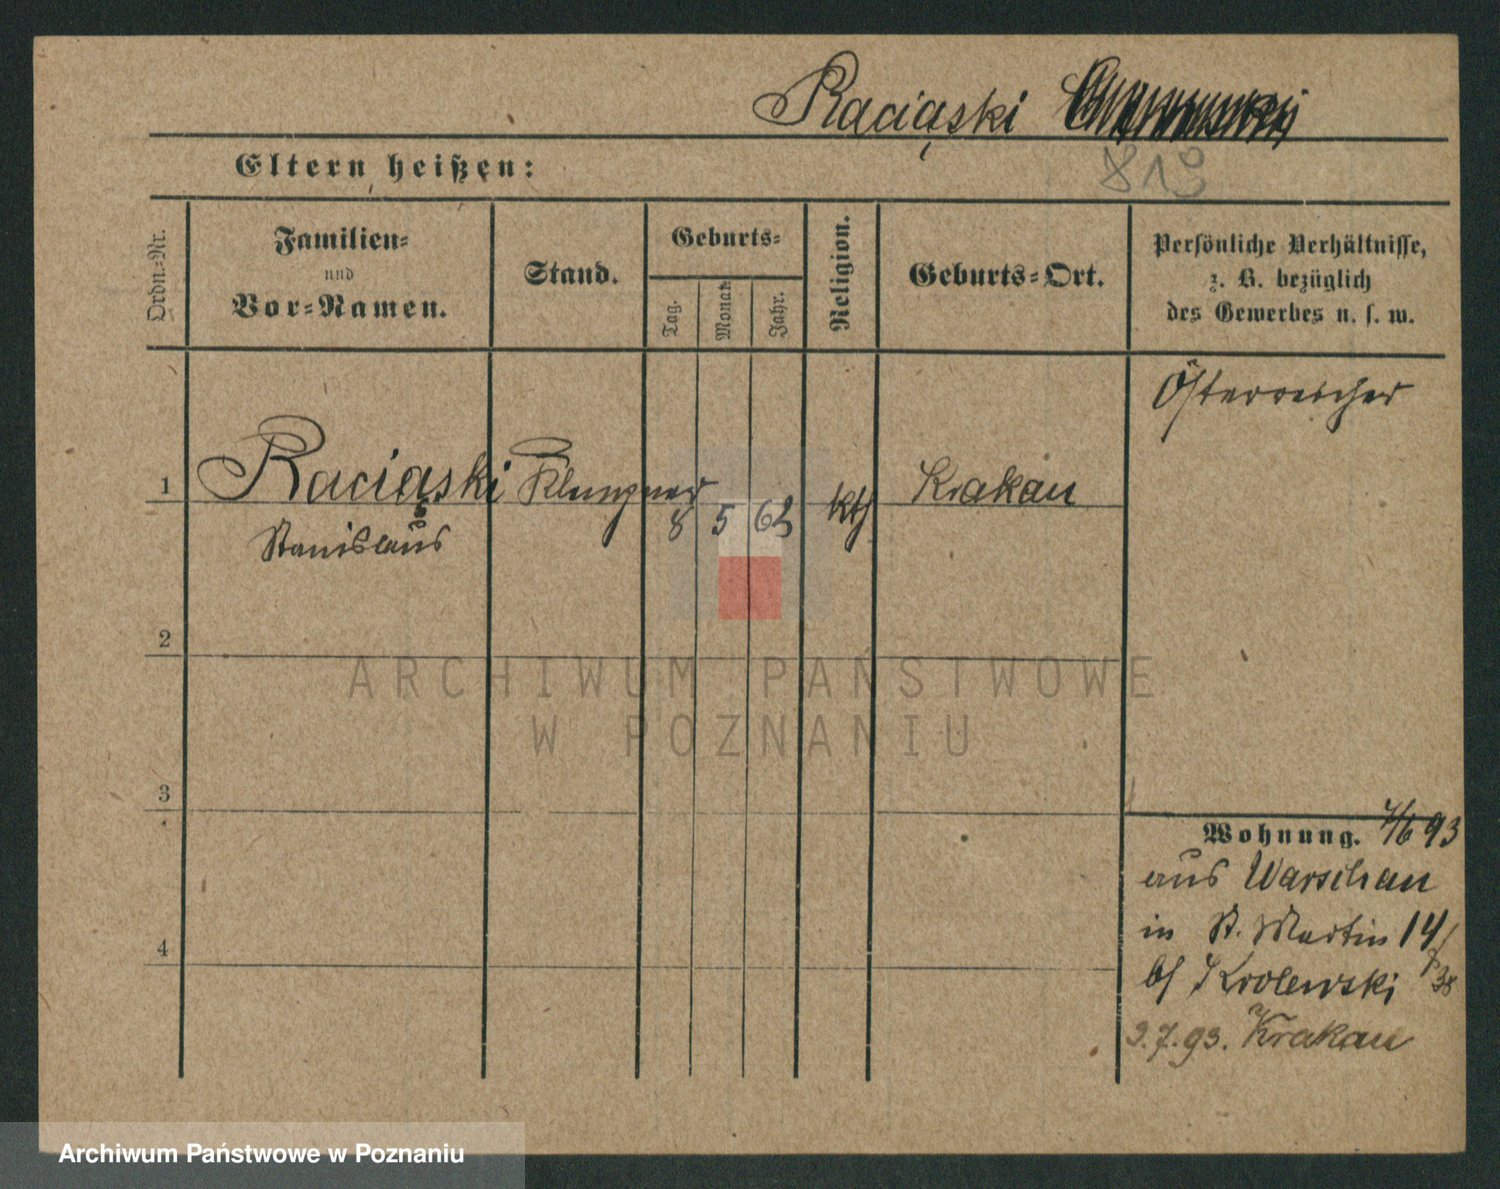 Raciąski
819
Eltern heißen:
Ordn.-Nr.
Familien-
und
Vor-Namen.
Stand.
Geburts-
Tag.
Monat
Jahr.
Religion.
Geburts-Ort.
Persönliche Verhältnisse,
z. B. bezüglich
des Gewerbes u. s. w.
Österreicher
1
Raciąski
Klempner
8 5 62
kth
Krakau
Stanislaus
2
ARCHIWUM PAŃSTWOWE
W POZNANIU
3
Wohnung. 4/6 93
aus Warschau
in St. Martin 14/
38
bf Krolewski
3.7.93. Krakau
4
Archiwum Państwowe w Poznaniu